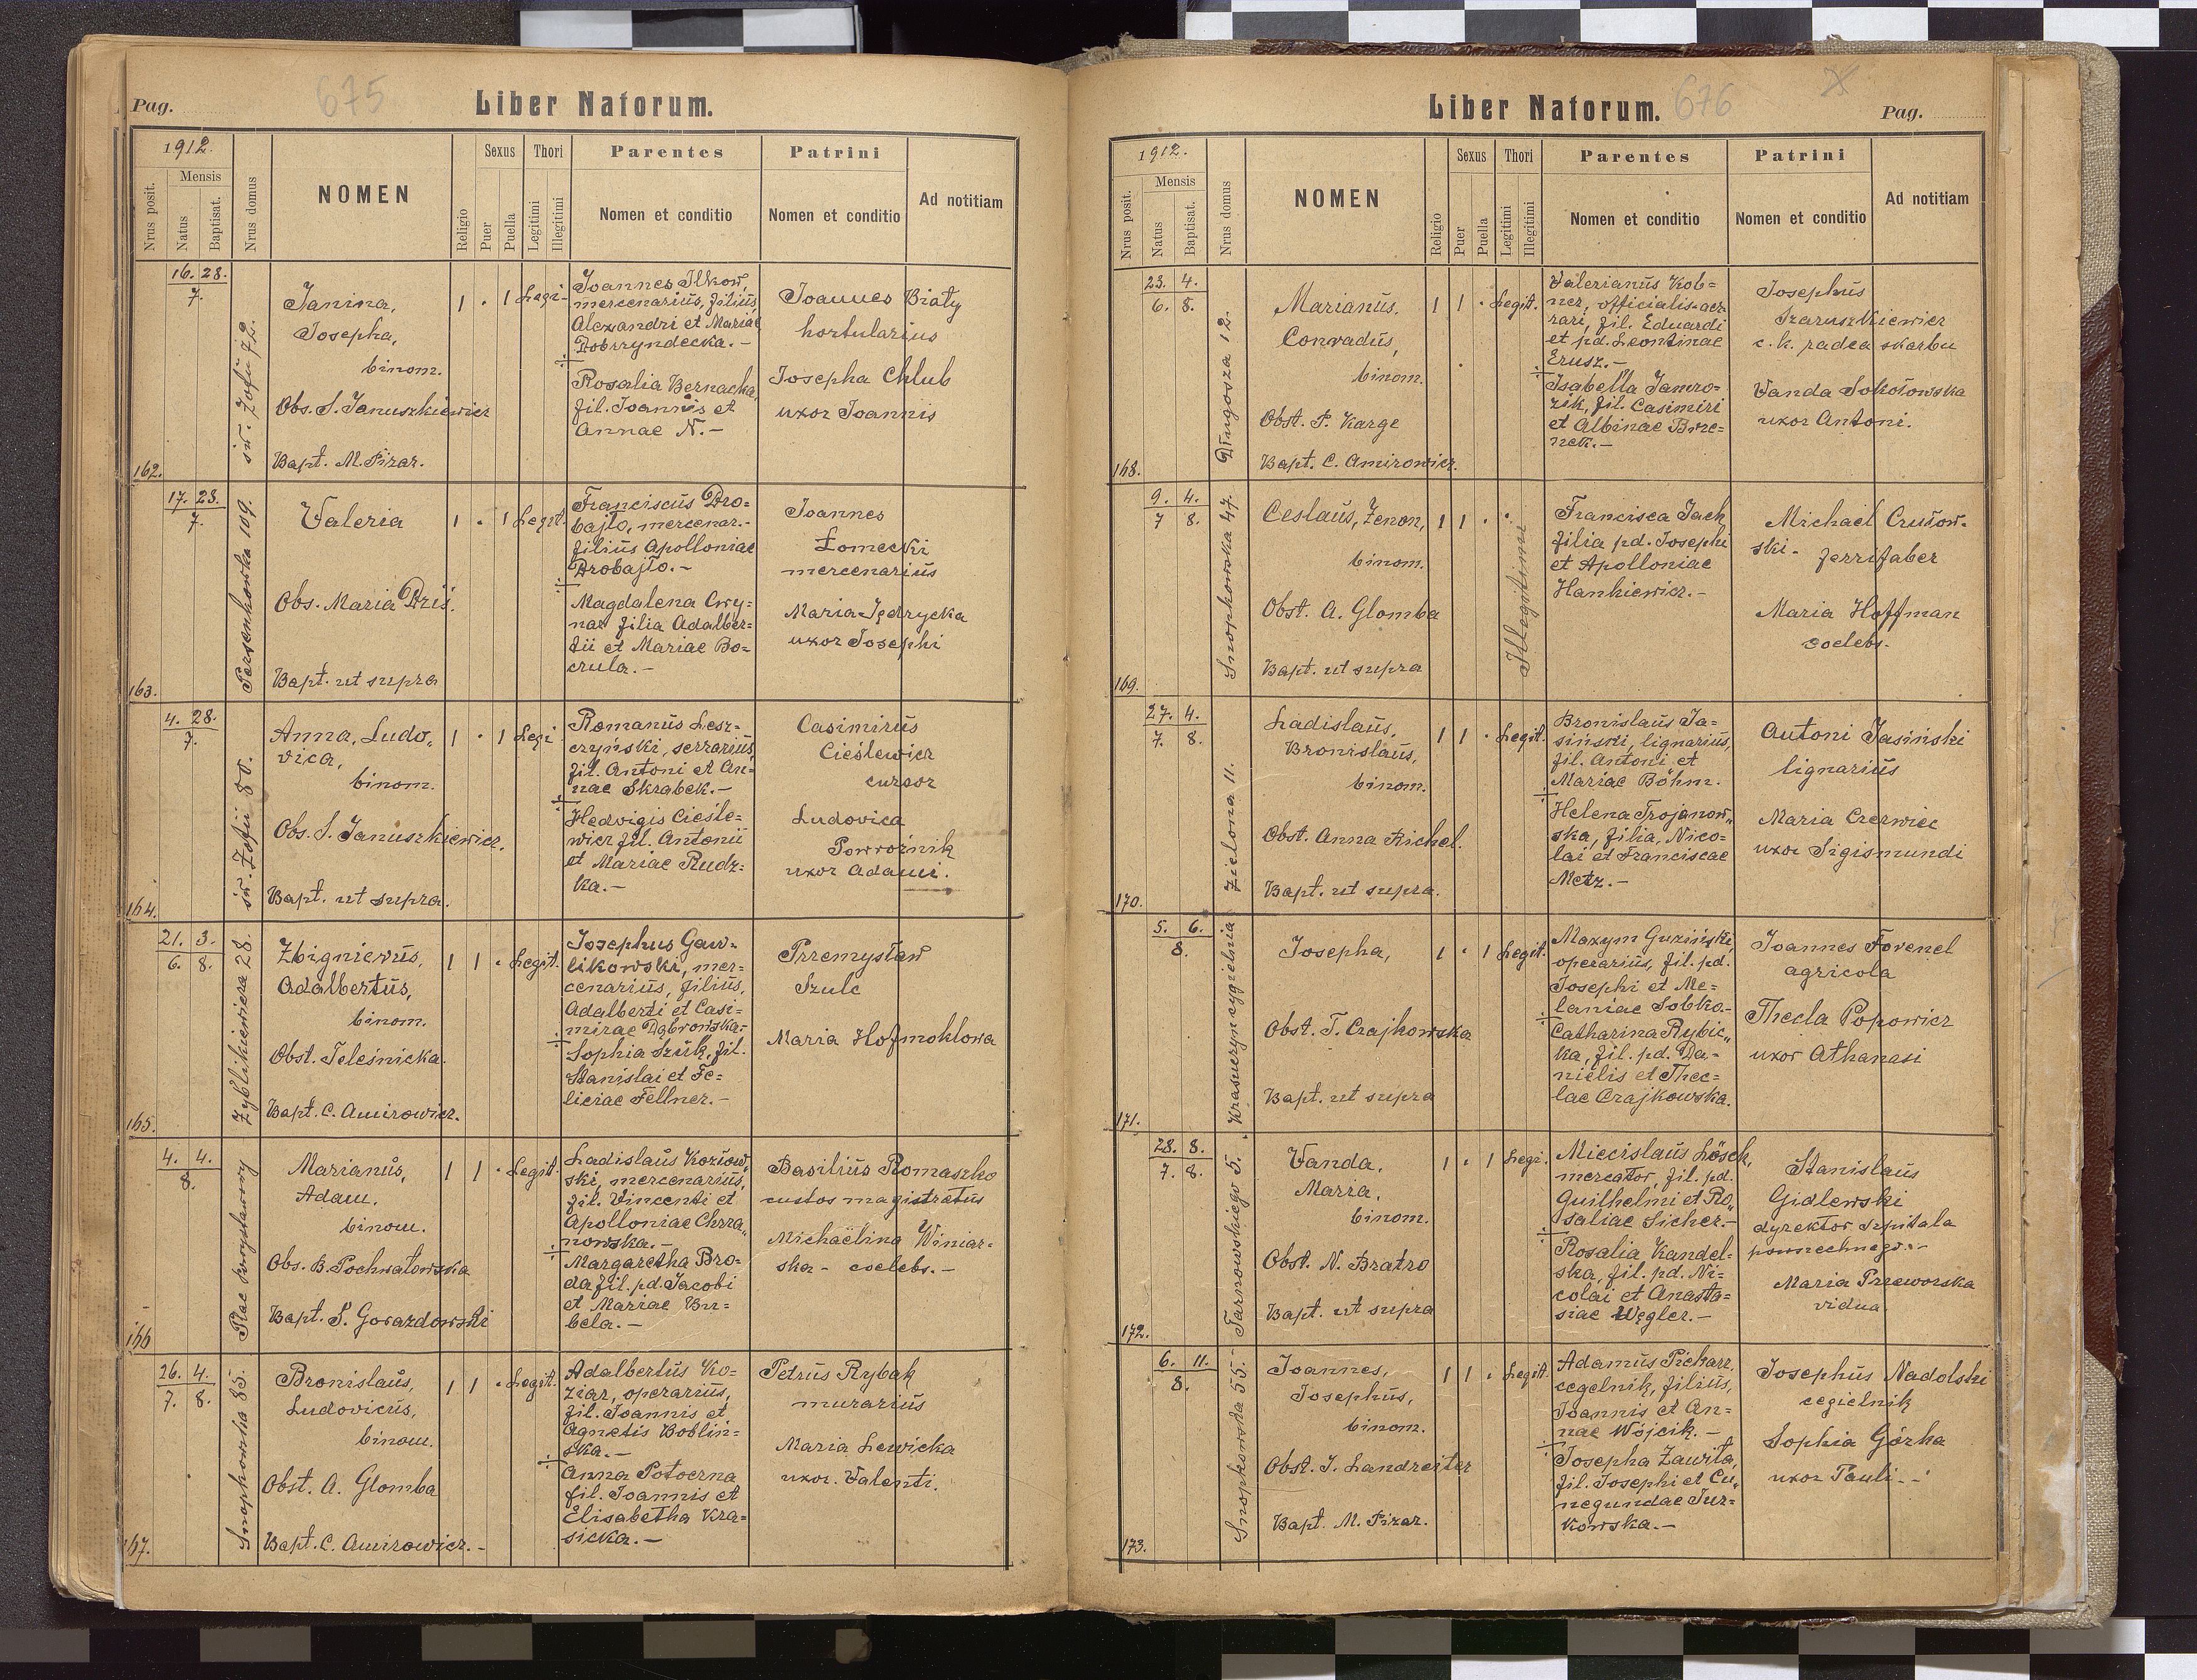 Pag.
675
Liber Natorum.
1912.
Nrus posit.
Mensis
Natus
Baptisat.
Nrus domus
NOMEN
Religio
Sexus
Puer
Puella
Thori
Legitimi
Illegitimi
Parentes
Nomen et conditio
Patrini
Nomen et conditio
Ad notitiam
162.
16. 28.
7.
św. Zofii 72.
Janina,
Josepha,
binom.
Obs. S. Januszkiewicz
Bapt. M. Pizar.
1 . 1 Legi-
Joannes Ilkow,
mercenarius, filius
Alexandri et Mariae
Dobrzyndecka. -
÷
Rosalia Bernacka,
fil. Joannis et
Annae N. -
Joannes Biały
hortularius
Josepha Chlub
uxor Joannis
163.
17. 28.
7.
Persenkowka 109.
Valeria
Obs. Maria Dziś.
Bapt. ut supra
1 . 1 Legit.
Franciscus Dro=
bajło, mercenar.-
filius Apolloniae
Drobajło. -
÷
Magdalena Cwy=
nar filia Adalber=
tii et Mariae Bo=
crula. -
Joannes
Łomecki
mercenarius
Maria Jędrycka
uxor Josephi
164.
4. 28.
7.
św. Zofii 80.
Anna, Ludo„
vica,
binom.
Obs. S. Januszkiewicz.
Bapt. ut supra.
1 . 1 Legi
Romanus Lesz=
czyński, serrarius,
fil. Antoni et An=
nae Skrabek. -
÷
Hedvigis Cieśle=
wicz fil. Antonii
et Mariae Rudz=
ka. -
Casimirus
Cieślewicz
cursor
Ludovica
Powroźnik
uxor Adami.
165.
21. 3.
6. 8.
Zyblikiewicza 28.
Zbigniewus,
Adalbertus,
binom.
Obst. Teleśnicka.
Bapt. C. Amirowicz.
1 1 . Legit.
Josephus Gaw=
likowski, mer=
cenarius, filius,
Adalberti et Casi=
mirae Dąbrowska-
÷
Sophia Szük, fil.
Stanislai et Fe=
liciae Fellner. -
Przemysław
Szulc
Maria Hofmoklowa
166
4. 4.
8.
Plac powystawowy
Marianus,
Adam.
binom.
Obs. B. Pochwatowska
Bapt. S. Gorazdowski
1 1 . Legit.
Ladislaus Kozłow„
ski, mercenarius,
fil. Vincenti et
Apolloniae Chrza„
nowska. -
÷
Margaretha Bro=
da fil. pd. Jacobi
et Mariae Bu=
bela. -
Basilius Romaszko
custos magistratus
Michaëlina Winiar=
ska - coelebs. -
167.
26. 4.
7. 8.
Snopkowska 85.
Bronislaus,
Ludovicus,
binom.
Obst. A. Glomba
Bapt. C. Amirowicz. -
1 1 . Legit.
Adalbertus Ko=
ziar, operarius,
fil. Joannis et
Agnetis Boblin=
ska. -
÷
Anna Potoczna
fil. Joannis et
Elisabetha Kra=
sicka. -
Petrus Rybak
murarius
Maria Lewicka
uxor. Valenti.
Liber Natorum.
676
Pag.
1912.
Nrus posit.
Mensis
Natus
Baptisat.
Nrus domus
NOMEN
Religio
Sexus
Puer
Puella
Thori
Legitimi
Illegitimi
Parentes
Nomen et conditio
Patrini
Nomen et conditio
Ad notitiam
168.
23. 4.
6. 8.
Długosza 12.
Marianus,
Conradus,
binom.
Obst. P. Karge
Bapt. C. Amirowicz.
1 1 . Legit.
Valerianus Kob=
ner, officialis aer=
rari, fil. Eduardi
et pd. Leontinae
Erusz. -
÷
Isabella Jamro=
zik, fil. Casimiri
et Albinae Brze=
nek. -
Josephus
Szaruszkiewicz
c. k. radca skarbu
Vanda Sokołowska
uxor Antoni.
169.
9. 4.
7 8.
Snopkowska 47.
Ceslaus, Zenon,
binom.
Obst. A. Glomba
Bapt. ut supra
1 1 . .
Illegitimi
Francisca Jach
filia pd. Josephi
et Apolloniae
Hankiewicz. -
Michael Crusow.
ski - ferrifaber
Maria Hoffman
coelebs.
170.
27. 4.
7. 8.
Zielona 11.
Ladislaus,
Bronislaus,
binom.
Obst. Anna Richel.
Bapt. ut supra.
1 1 . Legit.
Bronislaus Ja=
siński, lignarius,
fil. Antoni et
Mariae Böhm.
÷
Helena Trojanow„
ska, filia, Nico=
lai et Franciscae
Metz. -
Antoni Jasiński
lignarius
Maria Czerwiec
uxor Sigismundi
171.
5. 6.
8.
Krasuczyn cygielnia
Josepha,
Obst. T. Czajkowska
Bapt. ut supra
1 . 1 Legit.
Maxym Guziński,
operarius, fil. pd.
Josephi et Me=
laniae Sobko-
÷
Catharina Rybic„
ka, fil. pd. Da=
nielis et Thec=
lae Czajkowska.
Joannes Forenel
agricola
Thecla Popowicz
uxor Athanasi
172.
28. 8.
7. 8.
Tarnowskiego 5.
Vanda,
Maria,
binom.
Obst. N. Bratro
Bapt. ut supra
1 . 1 Legi.
Miecislaus Lösch,
mercator, fil. pd.
Guilhelmi et Ro„
saliae Sicher. -
÷
Rosalia Kandel=
ska, fil. pd. Ni=
colai et Anasta=
siae Węgler. -
Stanislaus
Gidlewski
dyrektor szpitala
powszechnego. -
Maria Przeworska
vidua
173.
6. 11.
8.
Snopkowska 55.
Joannes,
Josephus,
binom.
Obst. J. Landreiter
Bapt. M. Pizar.
1 1 . Legit.
Adamus Pickarz,
cegelnik, filius,
Joannis et An=
nae Wójcik. -
÷
Josepha Zawiła,
fil. Josephi et Cu„
negundae Jur=
kowska. -
Josephus Nadolski
cegielnik
Sophia Górka
uxor Pauli. -